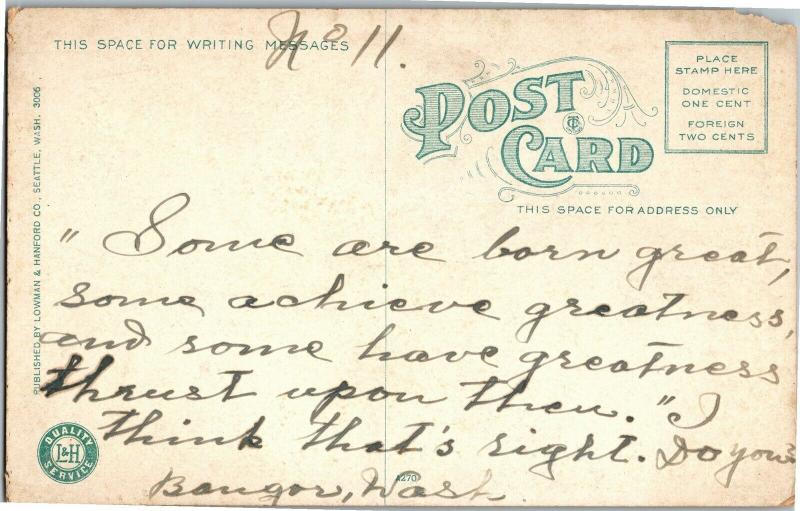 No 11.
THIS SPACE FOR WRITING MESSAGES
POST
CARD
THIS SPACE FOR ADDRESS ONLY
PLACE
STAMP HERE
DOMESTIC
ONE CENT
FOREIGN
TWO CENTS
PUBLISHED BY LOWMAN & HANFORD CO., SEATTLE, WASH. 3006
" Some are born great,
some achieve greatness,
and some have greatness
thrust upon them." I
think that's right. Do you?
Bangor, Wash.
QUALITY
L&H
SERVICE
A270